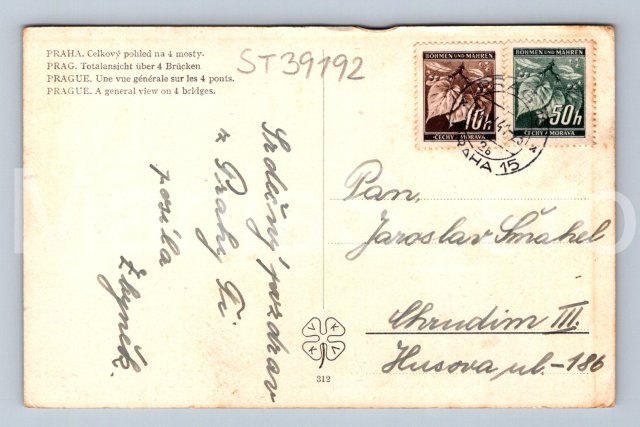 PRAHA. Celkový pohled na 4 mosty.
PRAG. Totalansicht über 4 Brücken
PRAGUE. Une vue générale sur les 4 ponts.
PRAGUE. A general view on 4 bridges.
ST39192
BÖHMEN UND MÄHREN
10h
ČECHY A MORAVA
BÖHMEN UND MÄHREN
50h
ČECHY A MORAVA
PRAHA 15
2b
Srdečný pozdrav
z Prahy Ti
posílá
Zbyněk.
Pan,
Jaroslav Smahel
Chrudim III.
Husova ul.-186
V K V K
312